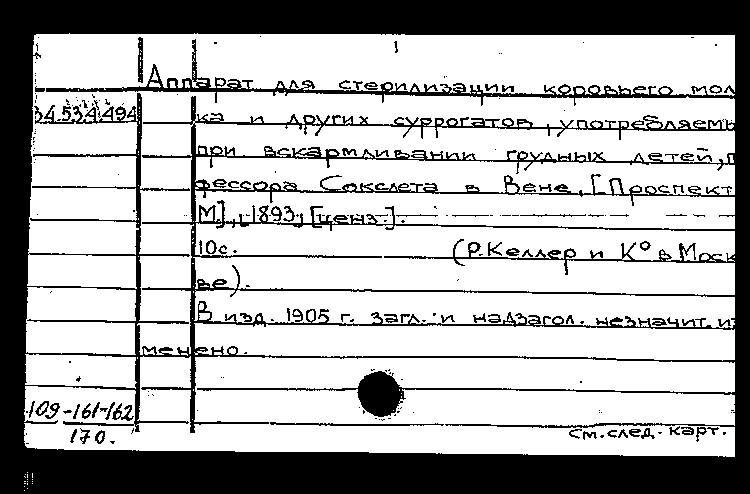 Аппарат для стерилизации коровьего мол
34.534.494 ка и других суррогатов, употребляемы
при вскармливании грудных детей, п
фессора Сокслета в Вене. [Проспект
М], 1893, [ценз.].
10с. (Р. Келлер и К° в Моск
ве).
В изд. 1905 г. загл. и надзагол. незначит. из
менено.
109-161-162
170.
см. след. карт.